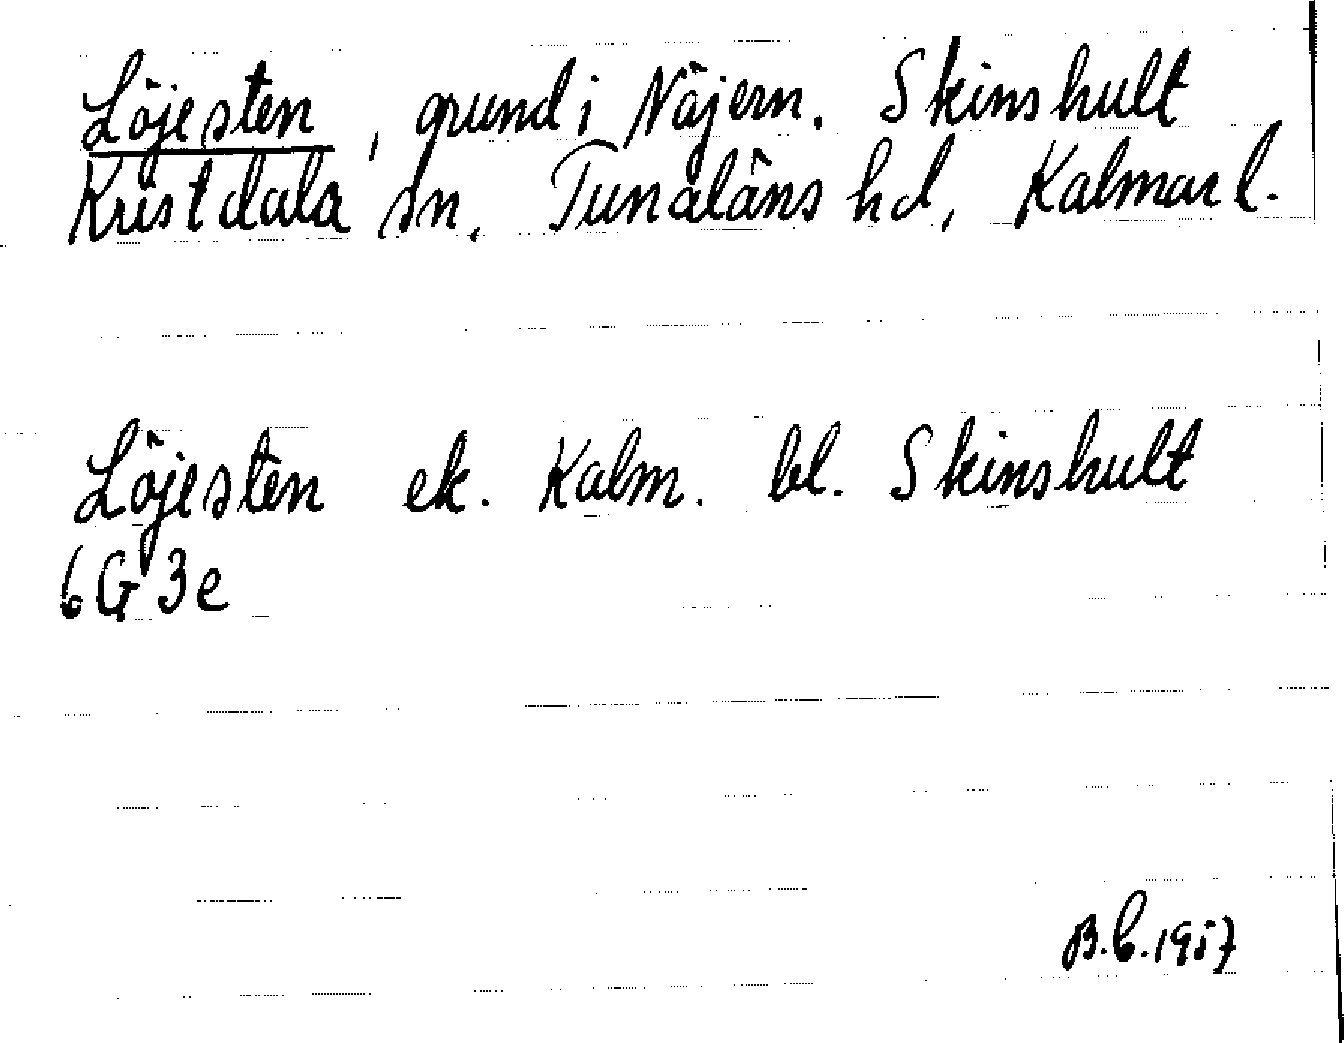 Löjesten, grund i Näjern. Skinshult
Kristdala sn, Tunaläns hd, Kalmar l.
Löjesten ek. Kalm. bl. Skinshult
6G3e
B.C. 1957